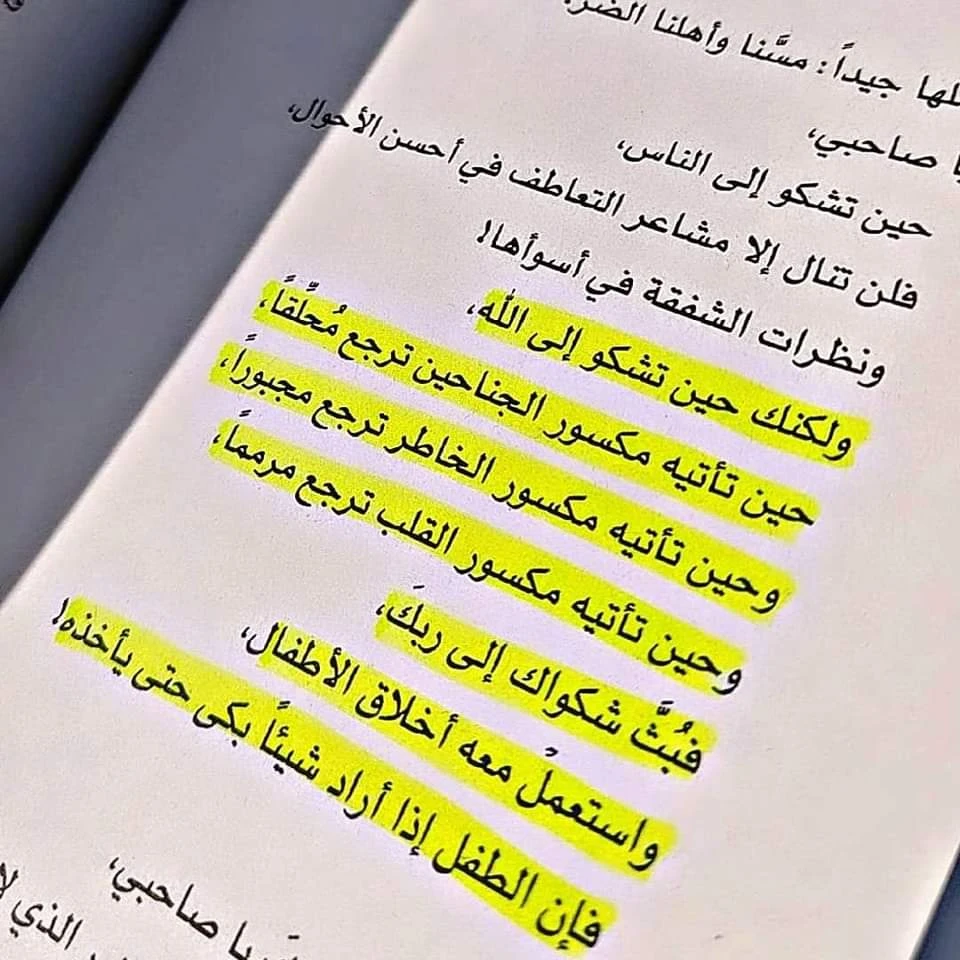 جيداً: مسَّنا وأهلنا الضر.
صاحبي،
حين تشكو إلى الناس،
فلن تنال إلا مشاعر التعاطف في أحسن الأحوال،
ونظرات الشفقة في أسوأها!
ولكنك حين تشكو إلى الله،
حين تأتيه مكسور الجناحين ترجع مُحلِّقاً،
وحين تأتيه مكسور الخاطر ترجع مجبوراً،
وحين تأتيه مكسور القلب ترجع مرمماً،
فبُثَّ شكواك إلى ربكَ،
واستعملْ معه أخلاق الأطفال،
فإن الطفل إذا أراد شيئاً بكى حتى يأخذه!
يا صاحبي،
الذي